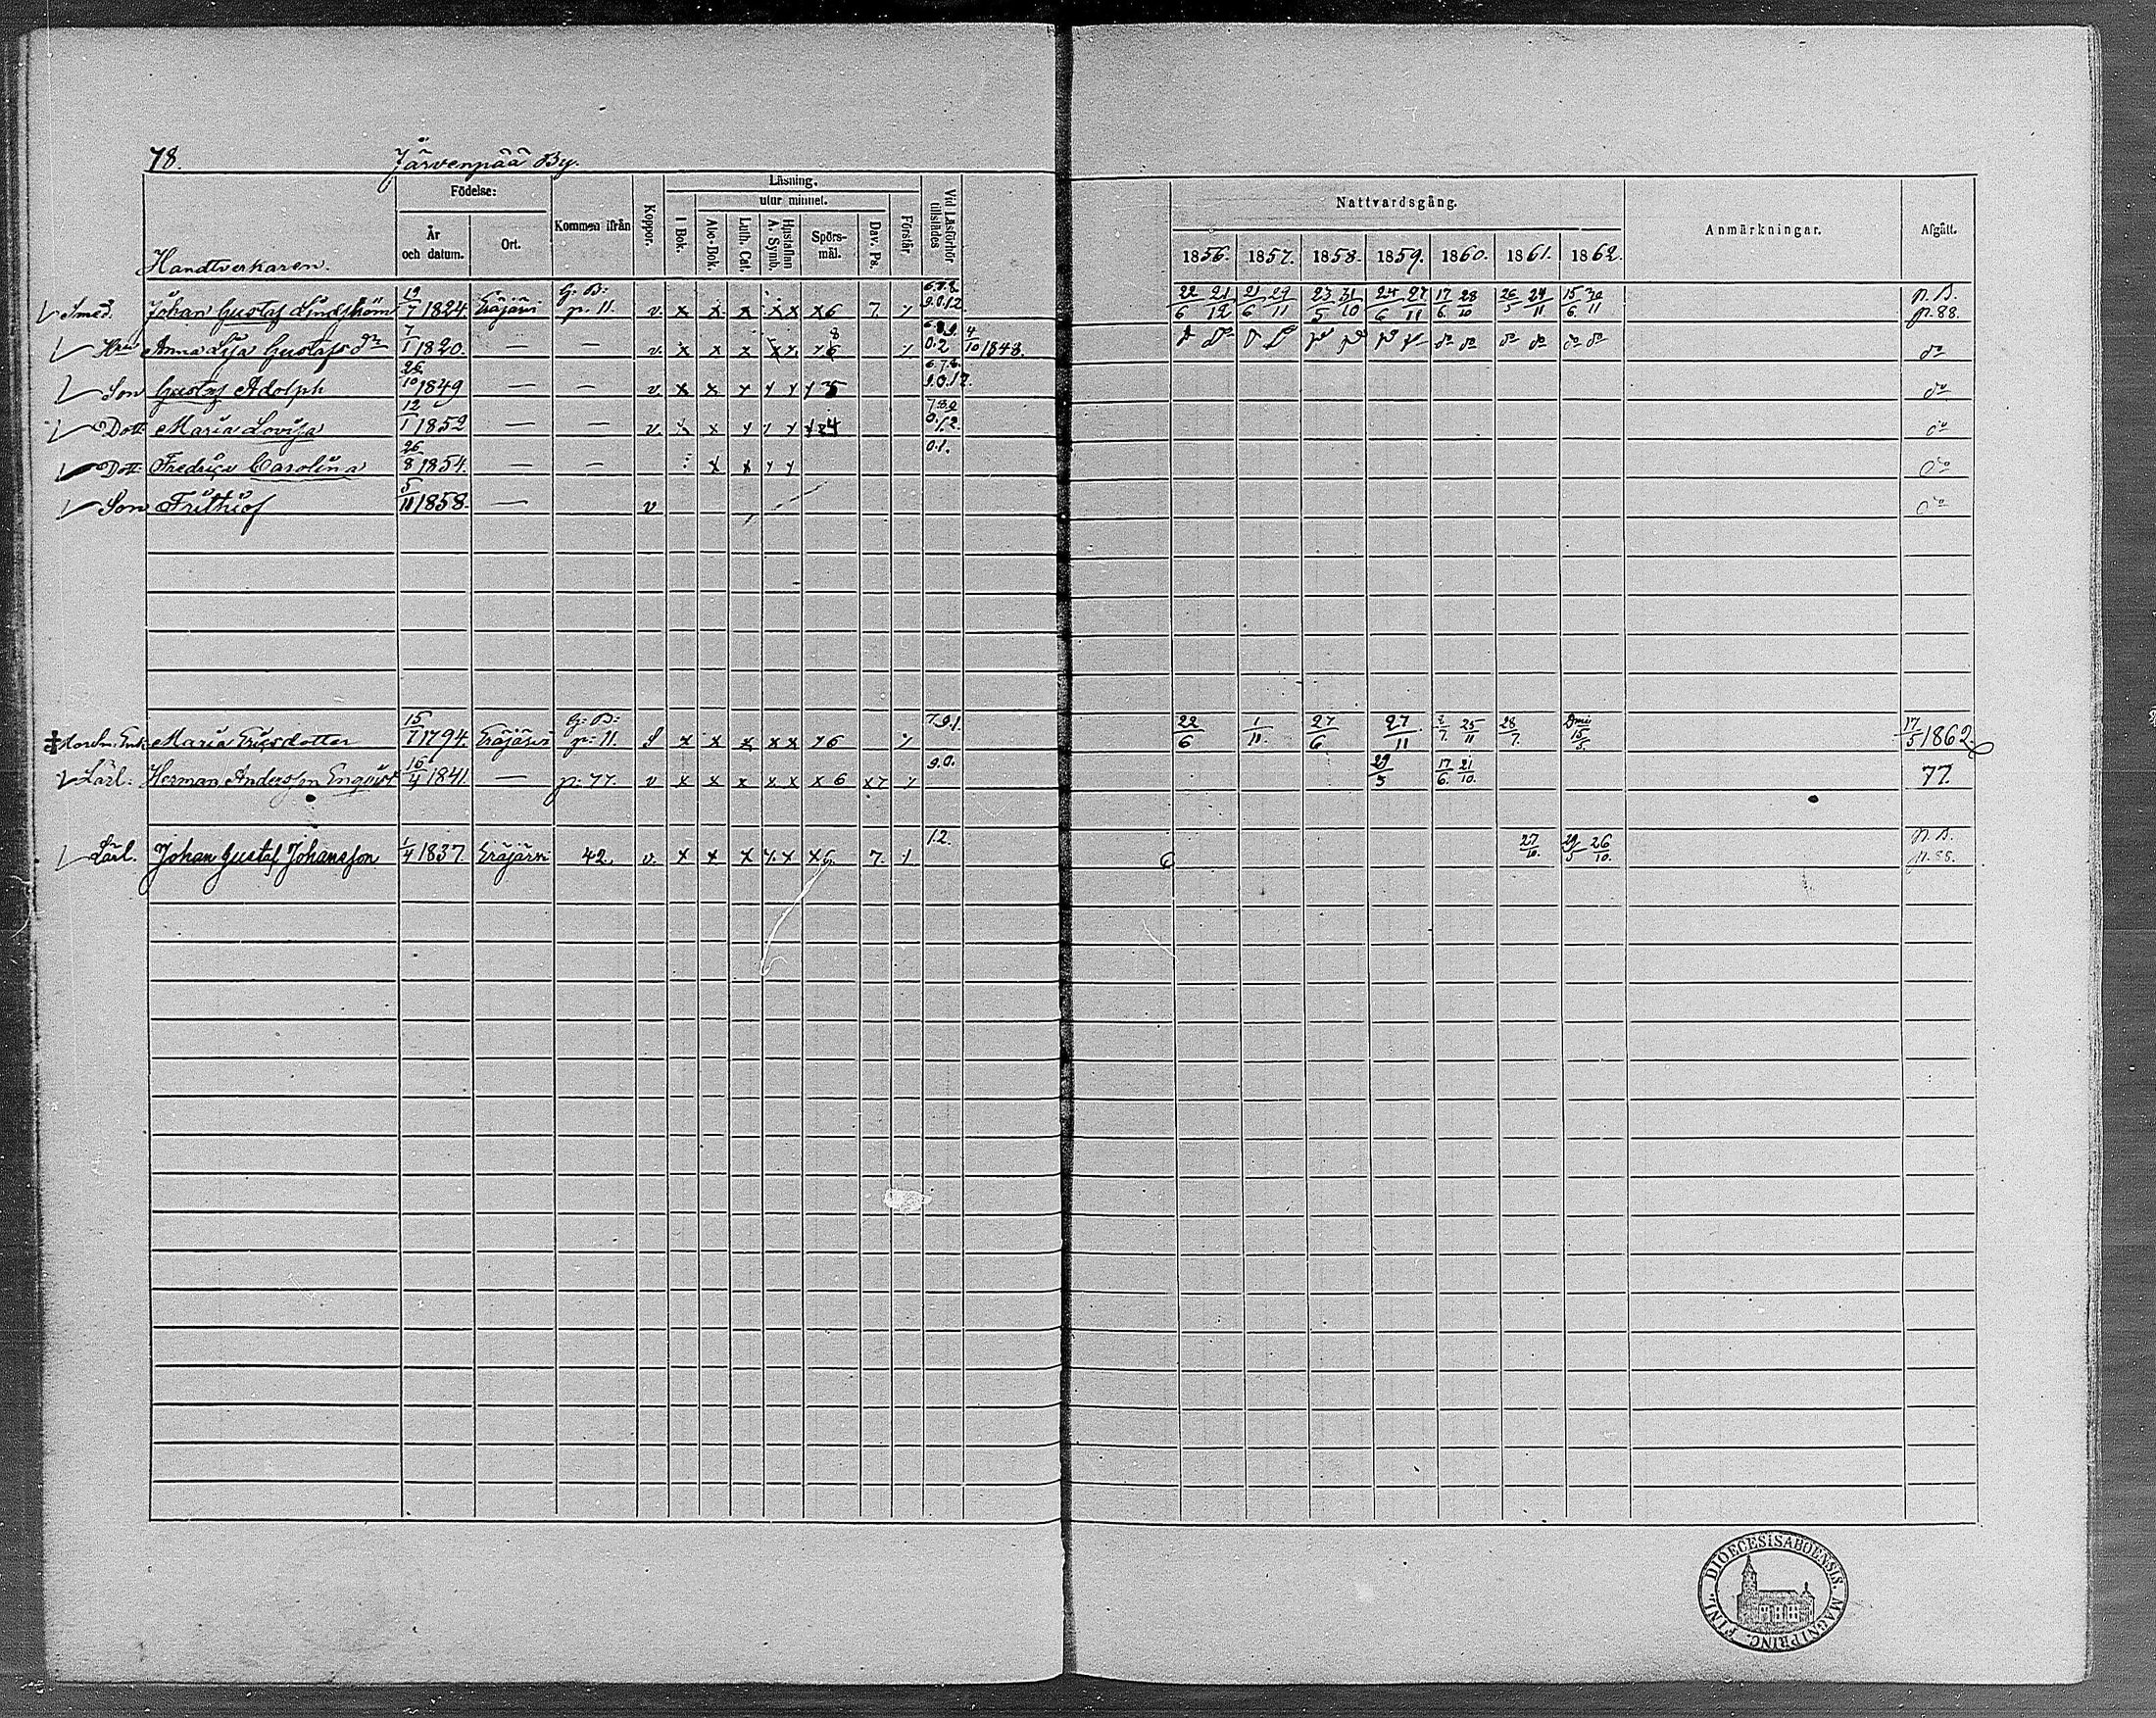 78. Järvenpää By.
Handtverkaren.
Födelse:
År och datum.
Ort.
Kommen ifrån
Koppor.
Läsning.
I Bok.
utur minnet.
Abc-Bok.
Luth. Cat.
Hustaflan A. Symb.
Spörsmål.
Dav. Ps.
Förstår
Vid Läsförhör tillstädes
Nattvardsgång.
1856. 1857. 1858. 1859. 1860. 1861. 1862.
Anmärkningar.
Afgått.
Smed. Johan Gustaf Lindström 19/7 1824 Eräjärvi G: B: p. 11. v. x x x x x x 6 7. 6.7.8. 9.0.12. 22/6 21/12 21/6 29/11 23/5 31/10 24/6 27/11 17/6. 28/10 26/5 24/11 15/6 30/11 N. B. p. 88.
Anna Lisa Gustafsdr 7/1 1820. — — v. x x x x x 8 6 0.2 4/10 1848. do
Son Gustaf Adolph 26/10 1849 — — v. x x 5 6.7.8. 9.0.12. do
Dott. Maria Lovisa 12/1 1852 — — v. x x 4 7.8.9 0.1.2. do
Dott. Fredrica Carolina 26/8 1854. — — x x 0.1. do
Son Frithiof 5/11 1858. — v do
Maria Ericsdotter 15/1 1794. Eräjärvi G: B: p. 11. x x x x x 6 7.9.1. 22/6 1/11. 27/6 27/11 2/7. 25/11 28/7. 15/5. 17/5 1862
Lärl. Herman Andersson Enqvist 16/4 1841 — p. 77. v x x x x x x 6 x 7 9.0. 29/5 17/6. 21/10. 77.
Lärl. Johan Gustaf Johansson 1/4 1837. Eräjärvi 42. v. x x x x x x 6. 7. 1.2. 27/10. 29/5 26/10. N. B. p. 88.
FINL. DIOECESIS ABOENSIS. MAGNI PRINC.